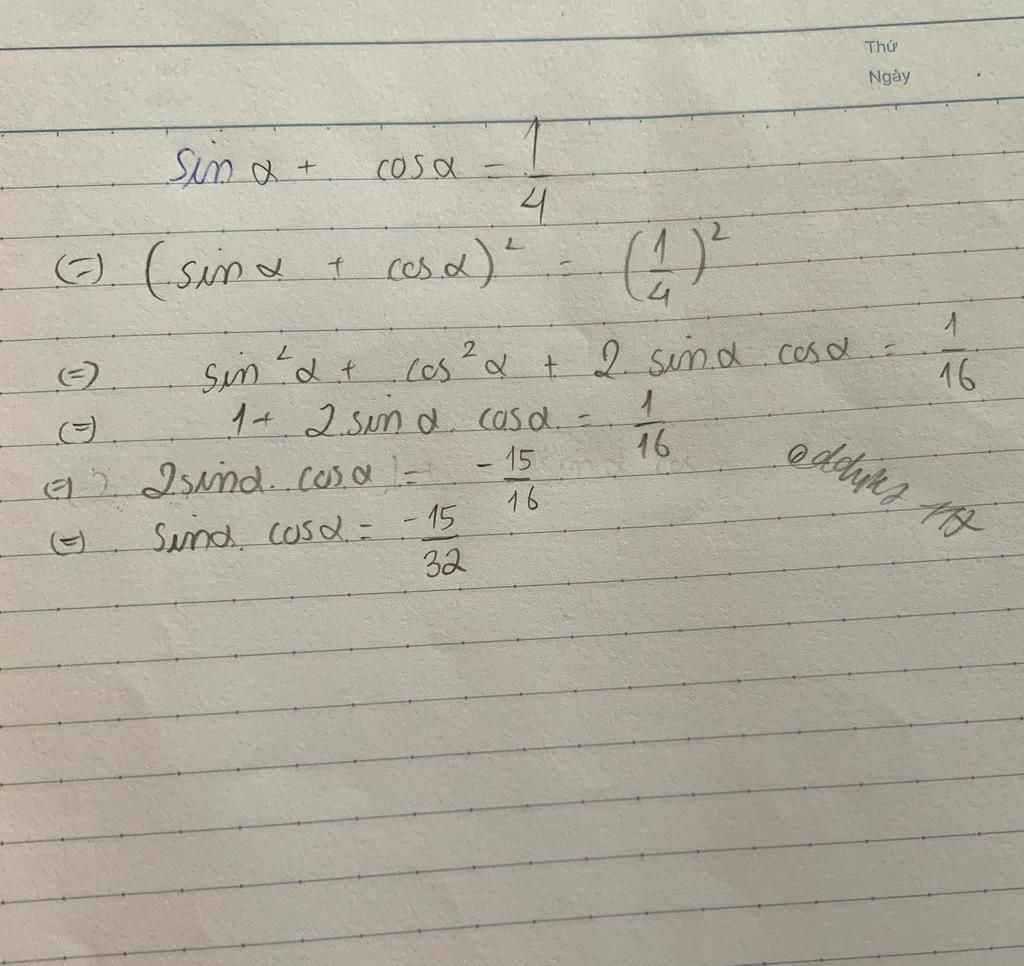 Thứ
Ngày
sin α + cos α = 1/4
(=) (sin α + cos α)² = (1/4)²
(=) sin² α + cos² α + 2 sin α cos α = 1/16
(=) 1 + 2 sin α. cos α = 1/16
(=) 2 sin α. cos α = -15/16
(=) sin α. cos α = -15/32